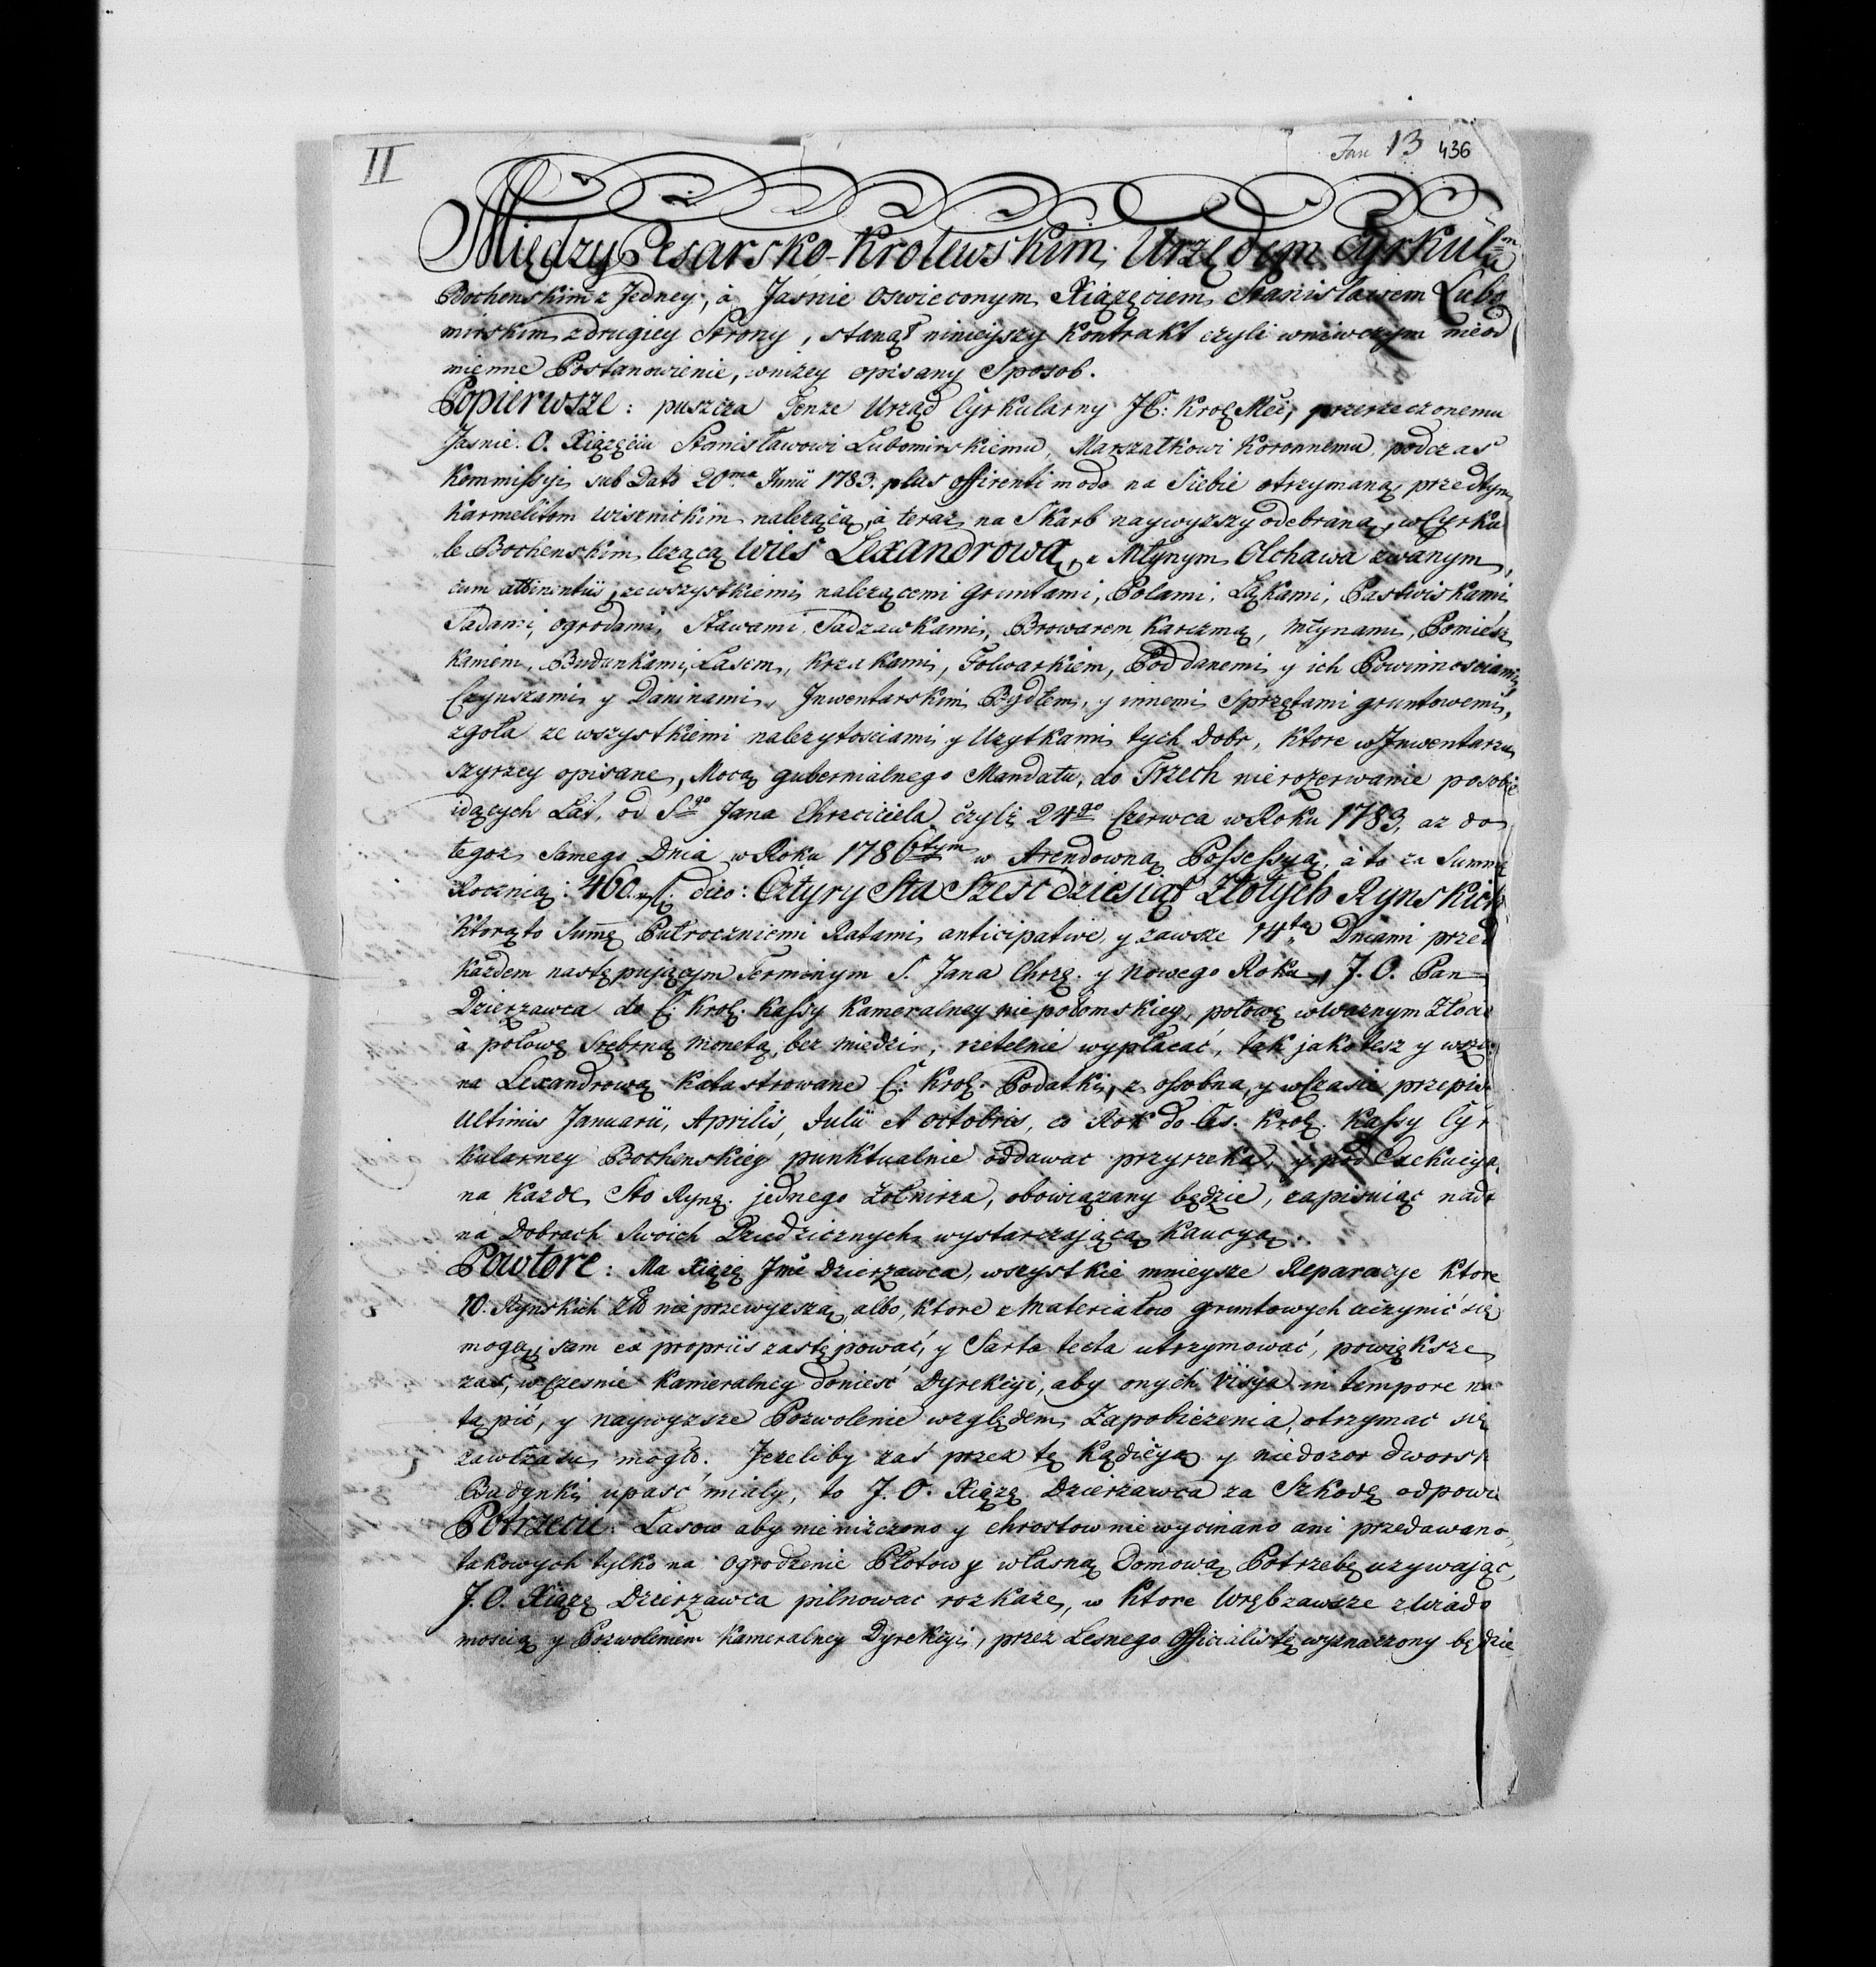 II
Jan 13 436
Między Cesarsko-Krolewskim Urzędem Cyrkula
Bochenskim z Jedney, à Jasnie Oswieconym Xiązęciem Stanisławem Lubo
mirskim z drugiey Strony, stanął ninieyszy Kontrakt czyli wniwczym nieod
mienne Postanowienie, wniżey opisany Sposob.
Popierwsze: puszcza Tenze Urząd Cyrkularny JC: Krolę Mći, przerzeczonemu
Jasnie O. Xiązęciu Stanisławowi Lubomirskiemu, Marszałkowi Koronnemu podczas
Kommissyi sub Dato 20ma Junii 1783. plus offerenti modo na Siebie otrzymaną, przedtym
Karmelitom Wisznickim nalezącą, à teraz na Skarb naywyzszy odebraną, w Cyrku
le Bochenskim lezącą Wieś Lexandrowa, z Młynym Olchawa zwanym,
cum attinentiis, ze wszystkiemi nalezącemi gruntami, Polami, Łąkami, Pastwiskami,
Sadami, ogrodami, Stawami, Sadzawkami, Browarem, Karczmą, Młynami, Pomiesz
kaniem, Budunkami, Lasem, Krzakami, Folwarkiem, Poddanemi y ich Powinnosciami,
Czynszami y Daninami, Inwentarskim Bydłem, y innemi Sprzętami gruntowemi,
zgoła ze wszystkiemi nalezytosciami y Uzytkami tych Dobr, ktore w Inwentarzu
szyrzey opisane, Mocą gubernialnego Mandatu, do Trzech nierozerwanie posobie
idących Lat, od Sgo Jana Chrzciciela czyli 24go Czerwca w Roku 1783, az do
tegoz samego Dnia w Roku 1786tym w Arendowną Possessyą, à to za Summę
Rocznią: 460 f: dico: Cztyry Sta Szesćdziesiąt Złotych Rynskich
Ktorąto Summę Pułroczniemi Ratami anticipative, y zawsze 14tą Dniami przed
Kazdem następującym Terminym S. Jana Chrzę. y Nowego Roku, J. O. Pan
Dzierzawca do C: Krolę. Kassy Kameralney Niepołomskiey, połowę w Waznym Złocie
à połowę Srebrną Monetą, bez miedzi, rzetelnie wypłacać, tak jako tesz y wsz
na Lexandrową Katastrowane C: Krolę. Podatki, z osobna, y w Czasie przepis
Ultimis Januarii, Aprilis, Julii et Octobris, co Rok do Ces. Krolę. Kassy Cyr
kularney Bochenskiey punktualnie oddawac przyrzeka, y pod Exekucyą
na Kazde Sto Rynę. jednego Zołnirza, obowiązany będzie, zapisuiąc nadt
na Dobrach Swoich Dziedzicznych wystarczającą Kaucyą.
Powtore: Ma Xiązę Jmć Dzierzawca, wszystkie mnieysze Reparacye ktore
10. Rynskich Zł nie przewyzszą, albo, ktore z Materiałow gruntowych uczynić się
mogą, sam ex propriis zastępować, y Sarta tecta utrzymować, powiększe
zaś, wczesnie Kameralney donieść Dyrekcyi, aby onych Visya in tempore na
tąpić, y naywyzsze Pozwolenie względem Zapobiezenia, otrzymac się
zawczasu mogło. Jezeliby zaś przez tę Kądicyą y niedozor dworsk
Budynki upasć miały, to J. O. Xiązę Dzierzawca za Szkodę odpowi
Potrzecie: Lasow aby nie niszczono y chrostow nie wycinano ani przedawano,
takowych tylko na Ogrodzenie Płotow y własną Domową Potrzebę uzywając,
J. O. Xiązę Dzierzawca pilnowac rozkaze, w Ktore Wręb zawsze z Wiado
moscią y Pozwoleniem Kameralney Dyrekcyi, przez Lesnego Officialistę wyznaczony będzie